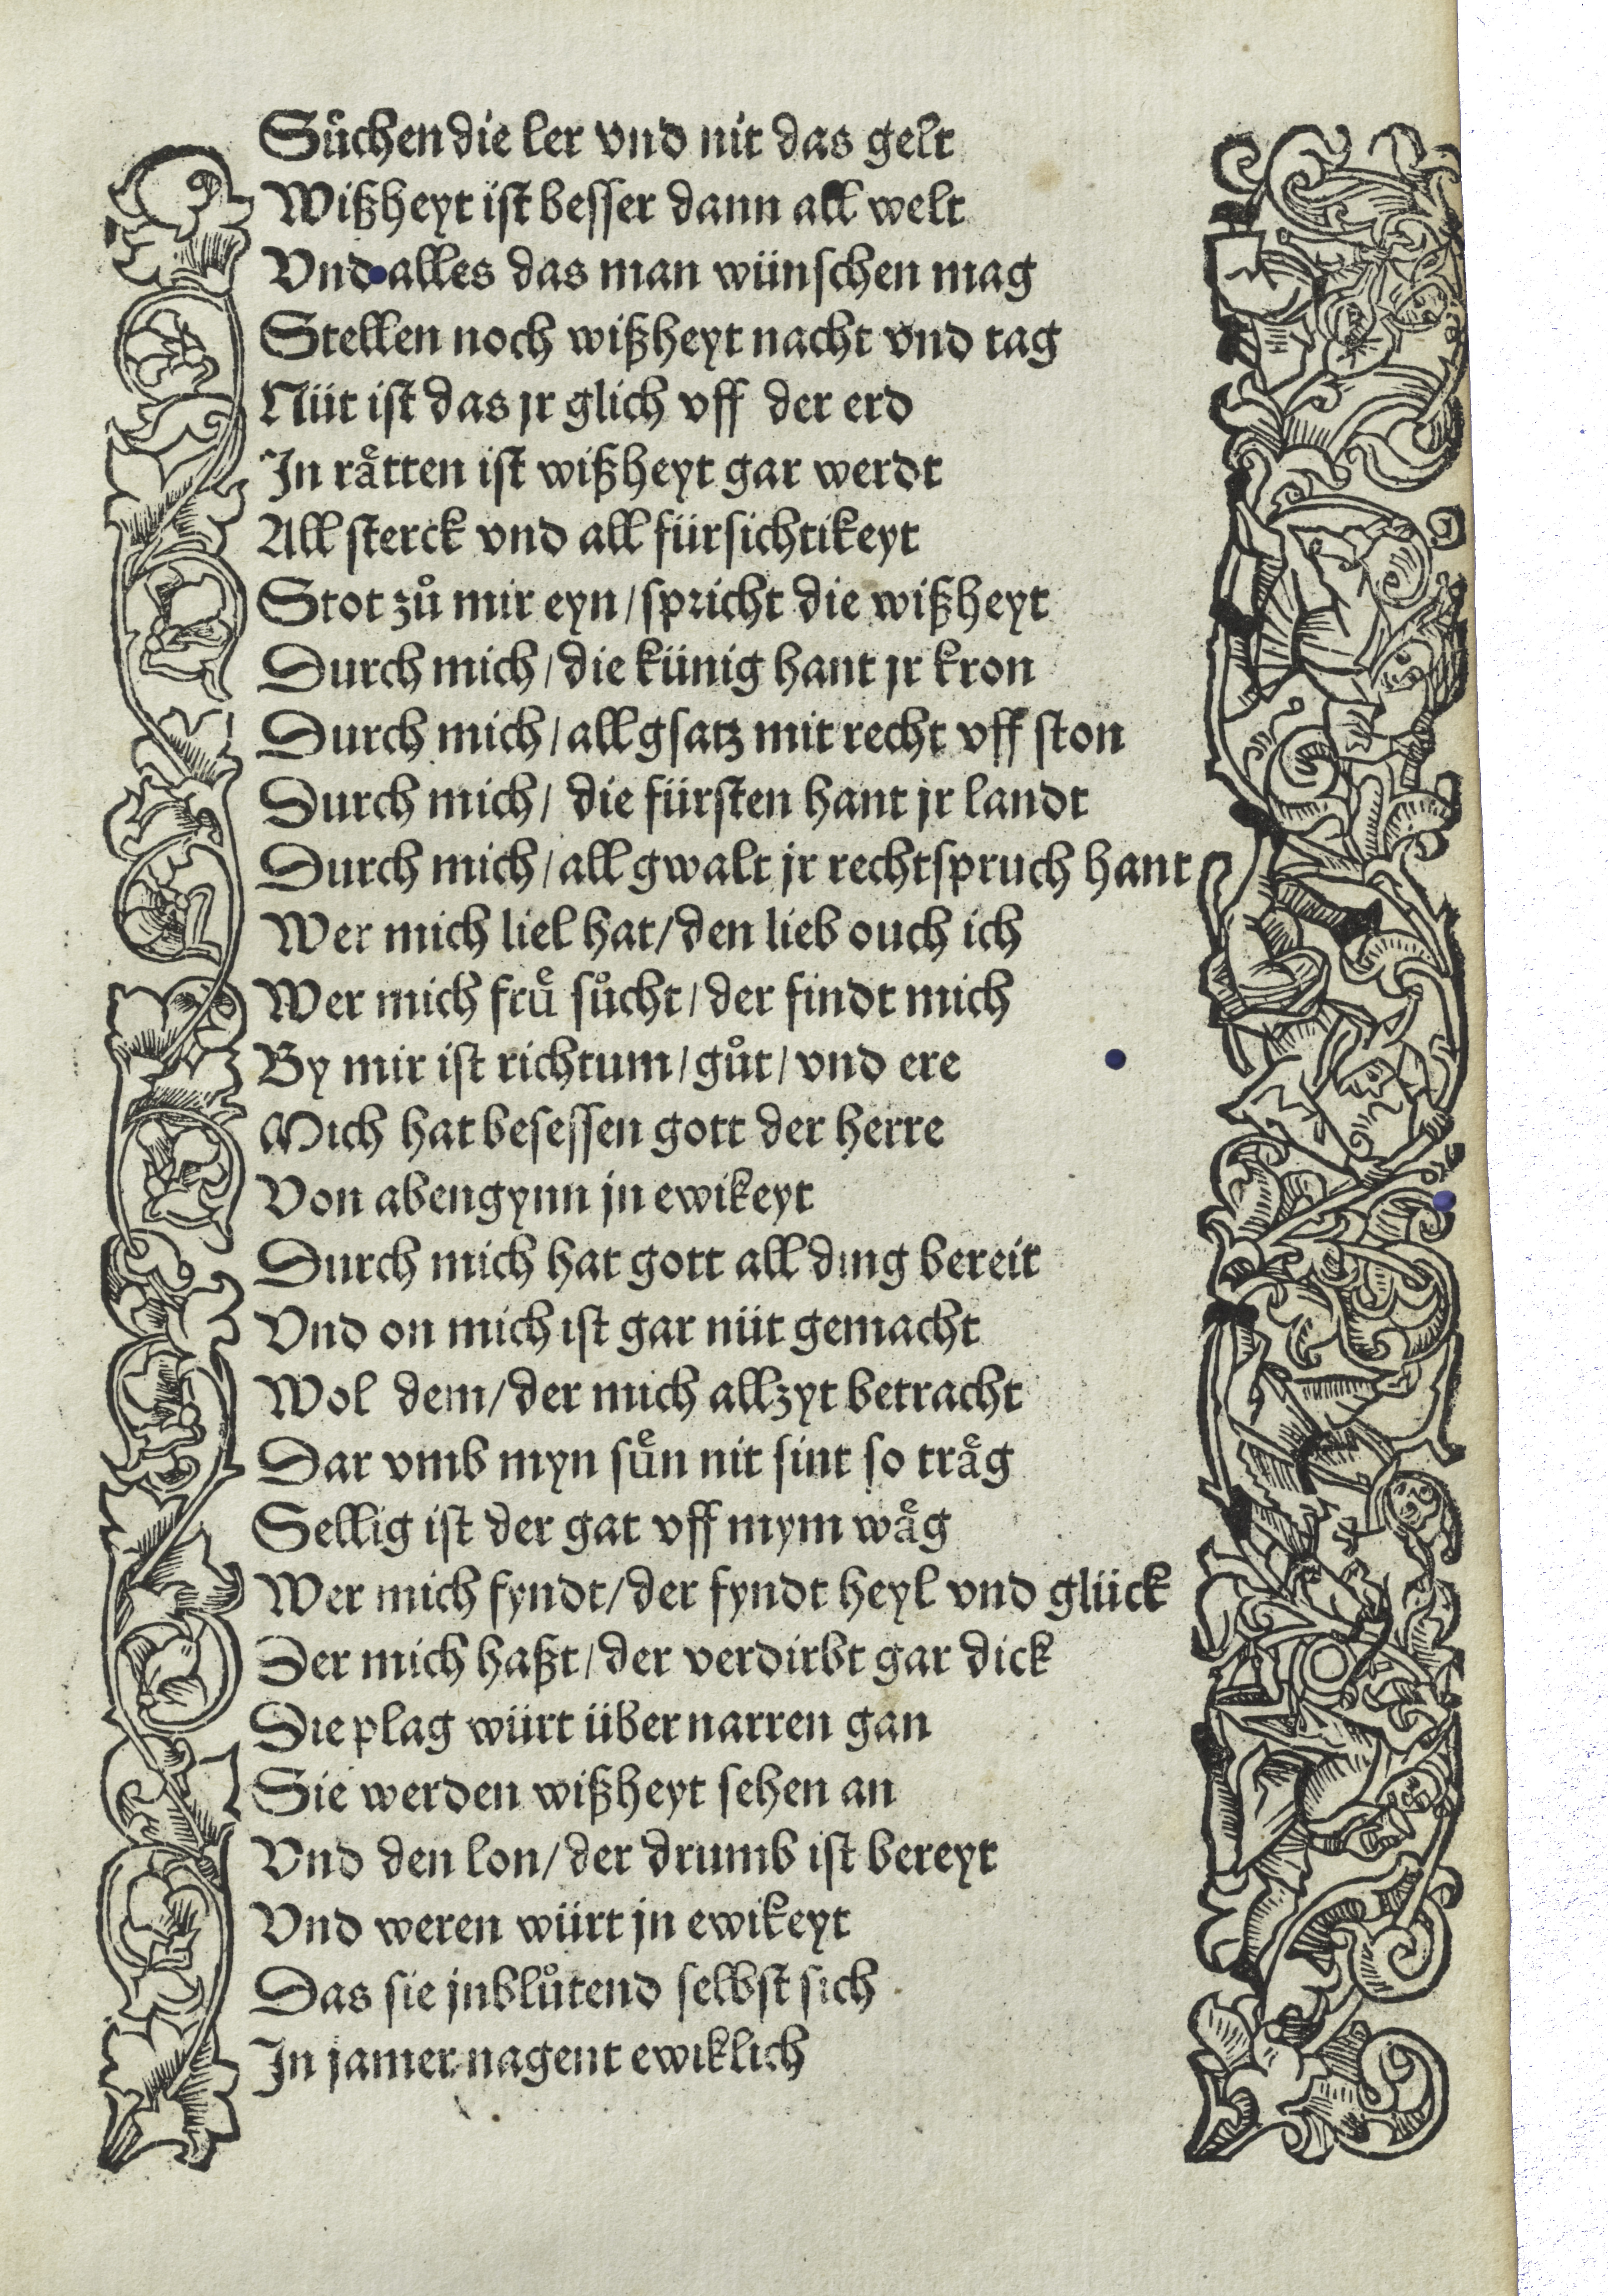 Suͦchen die ler vnd nit das gelt
Wißheyt ist besser dann all welt
Vnd alles das man wünschen mag
Stellen noch wißheyt nacht vnd tag
Nüt ist das jr glich vff der erd
In raͤtten ist wißheyt gar werdt
All sterck vnd all fürsichtikeyt
Stot zuͦ mir eyn / spricht die wißheyt
Durch mich / die künig hant jr kron
Durch mich / all gsatz mit recht vff ston
Durch mich / die fürsten hant jr landt
Durch mich / all gwalt jr rechtspruch hant
Wer mich liel hat / den lieb ouch ich
Wer mich fruͤ suͦcht / der findt mich
By mir ist richtum / guͦt / vnd ere
Mich hat besessen gott der herre
Von abengynn jn ewikeyt
Durch mich hat gott all ding bereit
Vnd on mich ist gar nüt gemacht
Wol dem / der mich allzyt betracht
Dar vmb myn suͤn nit sint so traͤg
Sellig ist der gat vff mym waͤg
Wer mich fyndt / der fyndt heyl vnd glück
Der mich haßt / der verdirbt gar dick
Die plag würt über narren gan
Sie werden wißheyt sehen an
Vnd den lon / der drumb ist bereyt
Vnd weren würt jn ewikeyt
Das sie jnbluͦtend selbst sich
In jamer nagent ewiklich